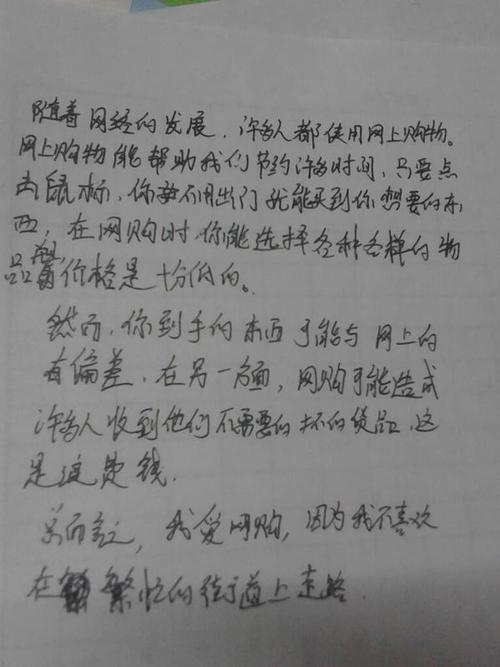 随着网络的发展，许多人都使用网上购物。
网上购物能帮助我们节约许多时间，只要点
击鼠标，你毋不用出门就能买到你想要的东
西，在网购时，你能选择各种各样的物
品，而价格是十分低的。
然而，你到手的东西可能与网上的
有偏差，在另一方面，网购可能造成
许多人收到他们不需要的坏的货品，这
是浪费钱.
总而言之，我爱网购，因为我不喜欢
在繁忙的街道上走路.